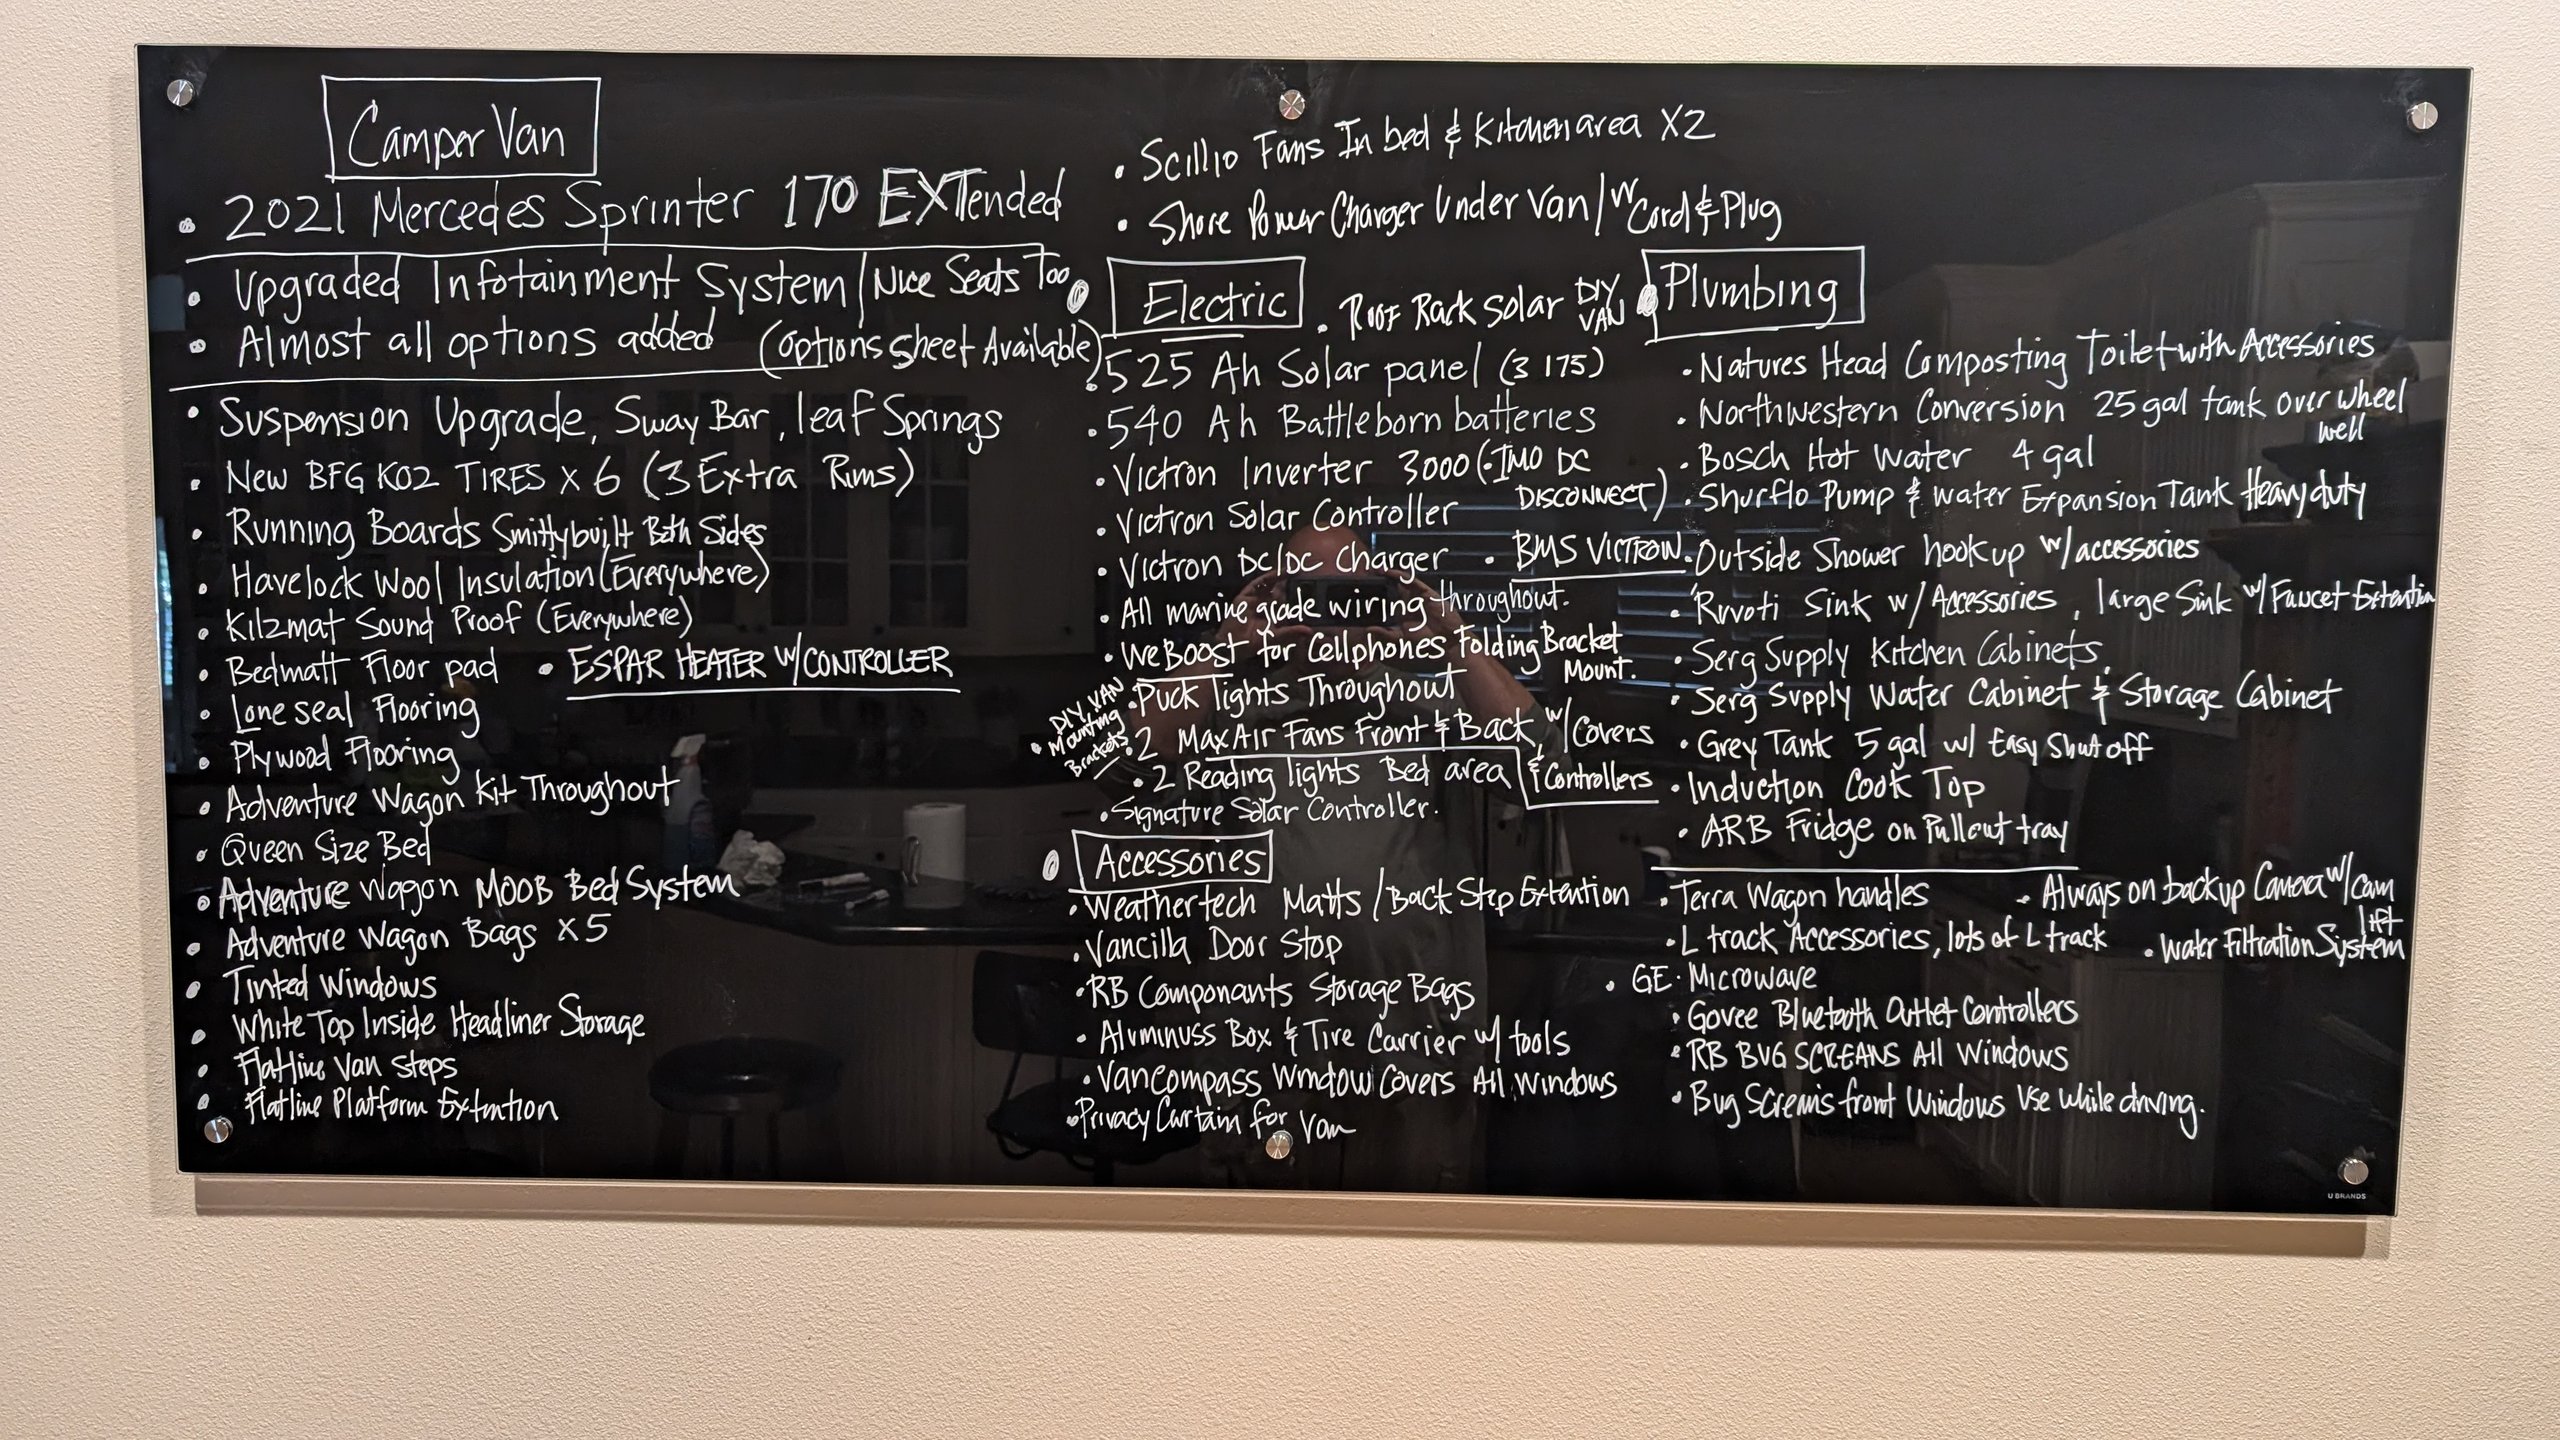 Camper Van
• 2021 Mercedes Sprinter 170 EXTended
• Upgraded Infotainment System/Nice Seats Too
• Almost all options added (Options sheet Available)
• Suspension Upgrade, Sway Bar, leaf Springs
• New BFG KO2 TIRES X 6 (3 Extra Rims)
• Running Boards Smittybuilt Both Sides
• Havelock Wool Insulation (Everywhere)
• Kilzmat Sound Proof (Everywhere)
• Bedmatt Floor pad • ESPAR HEATER W/CONTROLLER
• Lone seal Flooring
• Plywood Flooring
• Adventure Wagon Kit Throughout
• Queen Size Bed
• Adventure Wagon MOOB Bed System
• Adventure Wagon Bags X5
• Tinted Windows
• White Top Inside Headliner Storage
• Flatline Van Steps
• Flatline Platform Extention
• Scillio Fans In bed & Kitchen area X2
• Shore Power Charger Under Van/w Cord & Plug
Electric
• Roof Rack Solar DIY VAN
• 525 Ah Solar panel (3 175)
• 540 Ah Battleborn batteries
• Victron Inverter 3000 (•IMO DC
DISCONNECT)
• Victron Solar Controller
• Victron DC/DC Charger • BMS VICTRON
• All marine grade wiring throughout.
• WeBoost for Cellphones Folding Bracket
Mount.
• Puck lights Throughout
• DIY VAN
Mounting
Brackets
• 2 MaxAir Fans Front & Back w/Covers
& Controllers
• 2 Reading lights Bed area
• Signature Solar Controller.
• Accessories
• Weathertech Matts / Back Step Extention
• Vancilla Door Stop
• RB Componants Storage Bags
• Aluminuss Box & Tire Carrier w/ tools
• Vancompass Window Covers All Windows
• Privacy Curtain for Van
• Plumbing
• Natures Head Composting Toilet with Accessories
• Northwestern Conversion 25 gal tank over wheel
well
• Bosch Hot Water 4 gal
• Shurflo Pump & Water Expansion Tank Heavy duty
• Outside Shower hookup w/accessories
• Ruvoti Sink w/ Accessories, large Sink w/Faucet Extention
• Serg Supply Kitchen Cabinets.
• Serg Supply Water Cabinet & Storage Cabinet
• Grey Tank 5 gal w/ Easy Shut off
• Induction Cook Top
• ARB Fridge on Pullout tray
• Terra Wagon handles • Always on backup Camera w/cam
lift
• L track Accessories, lots of L track • Water Filtration System
• GE • Microwave
• Govee Bluetooth Outlet Controllers
• RB BUG SCREANS All Windows
• Bug Screins front Windows Use while driving.
U BRANDS